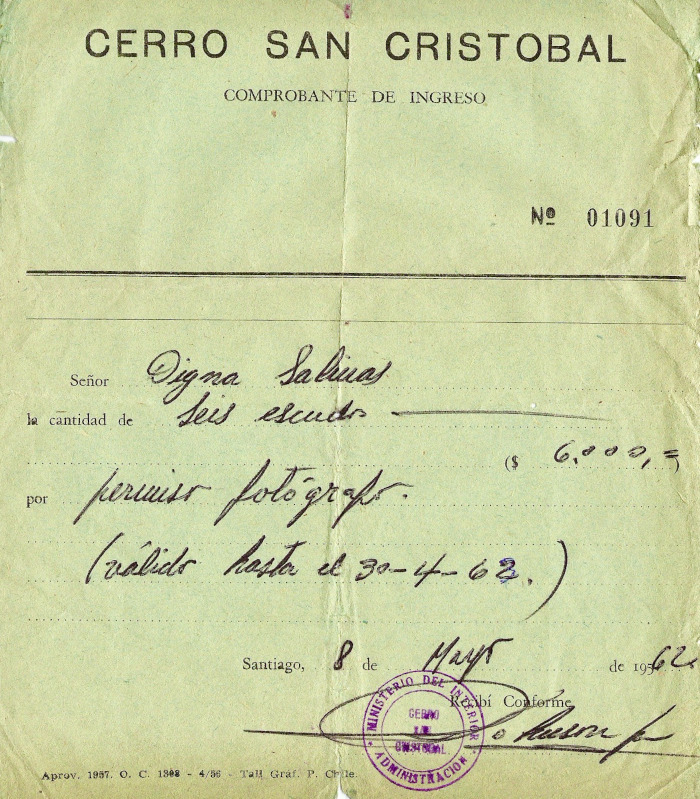 CERRO SAN CRISTOBAL
COMPROBANTE DE INGRESO
Nº 01091
Señor Digna Salinas
la cantidad de seis escudos
($ 6.000,=)
por permiso fotógrafo.
(válido hasta el 30-4-63.)
Santiago, 8 de Mayo de 1962
Recibí Conforme
MINISTERIO DEL INTERIOR
CERRO
SAN
CRISTOBAL
ADMINISTRACION
Aprov. 1957. O. C. 1398 - 4/56 - Tall. Gráf. P. Chile.